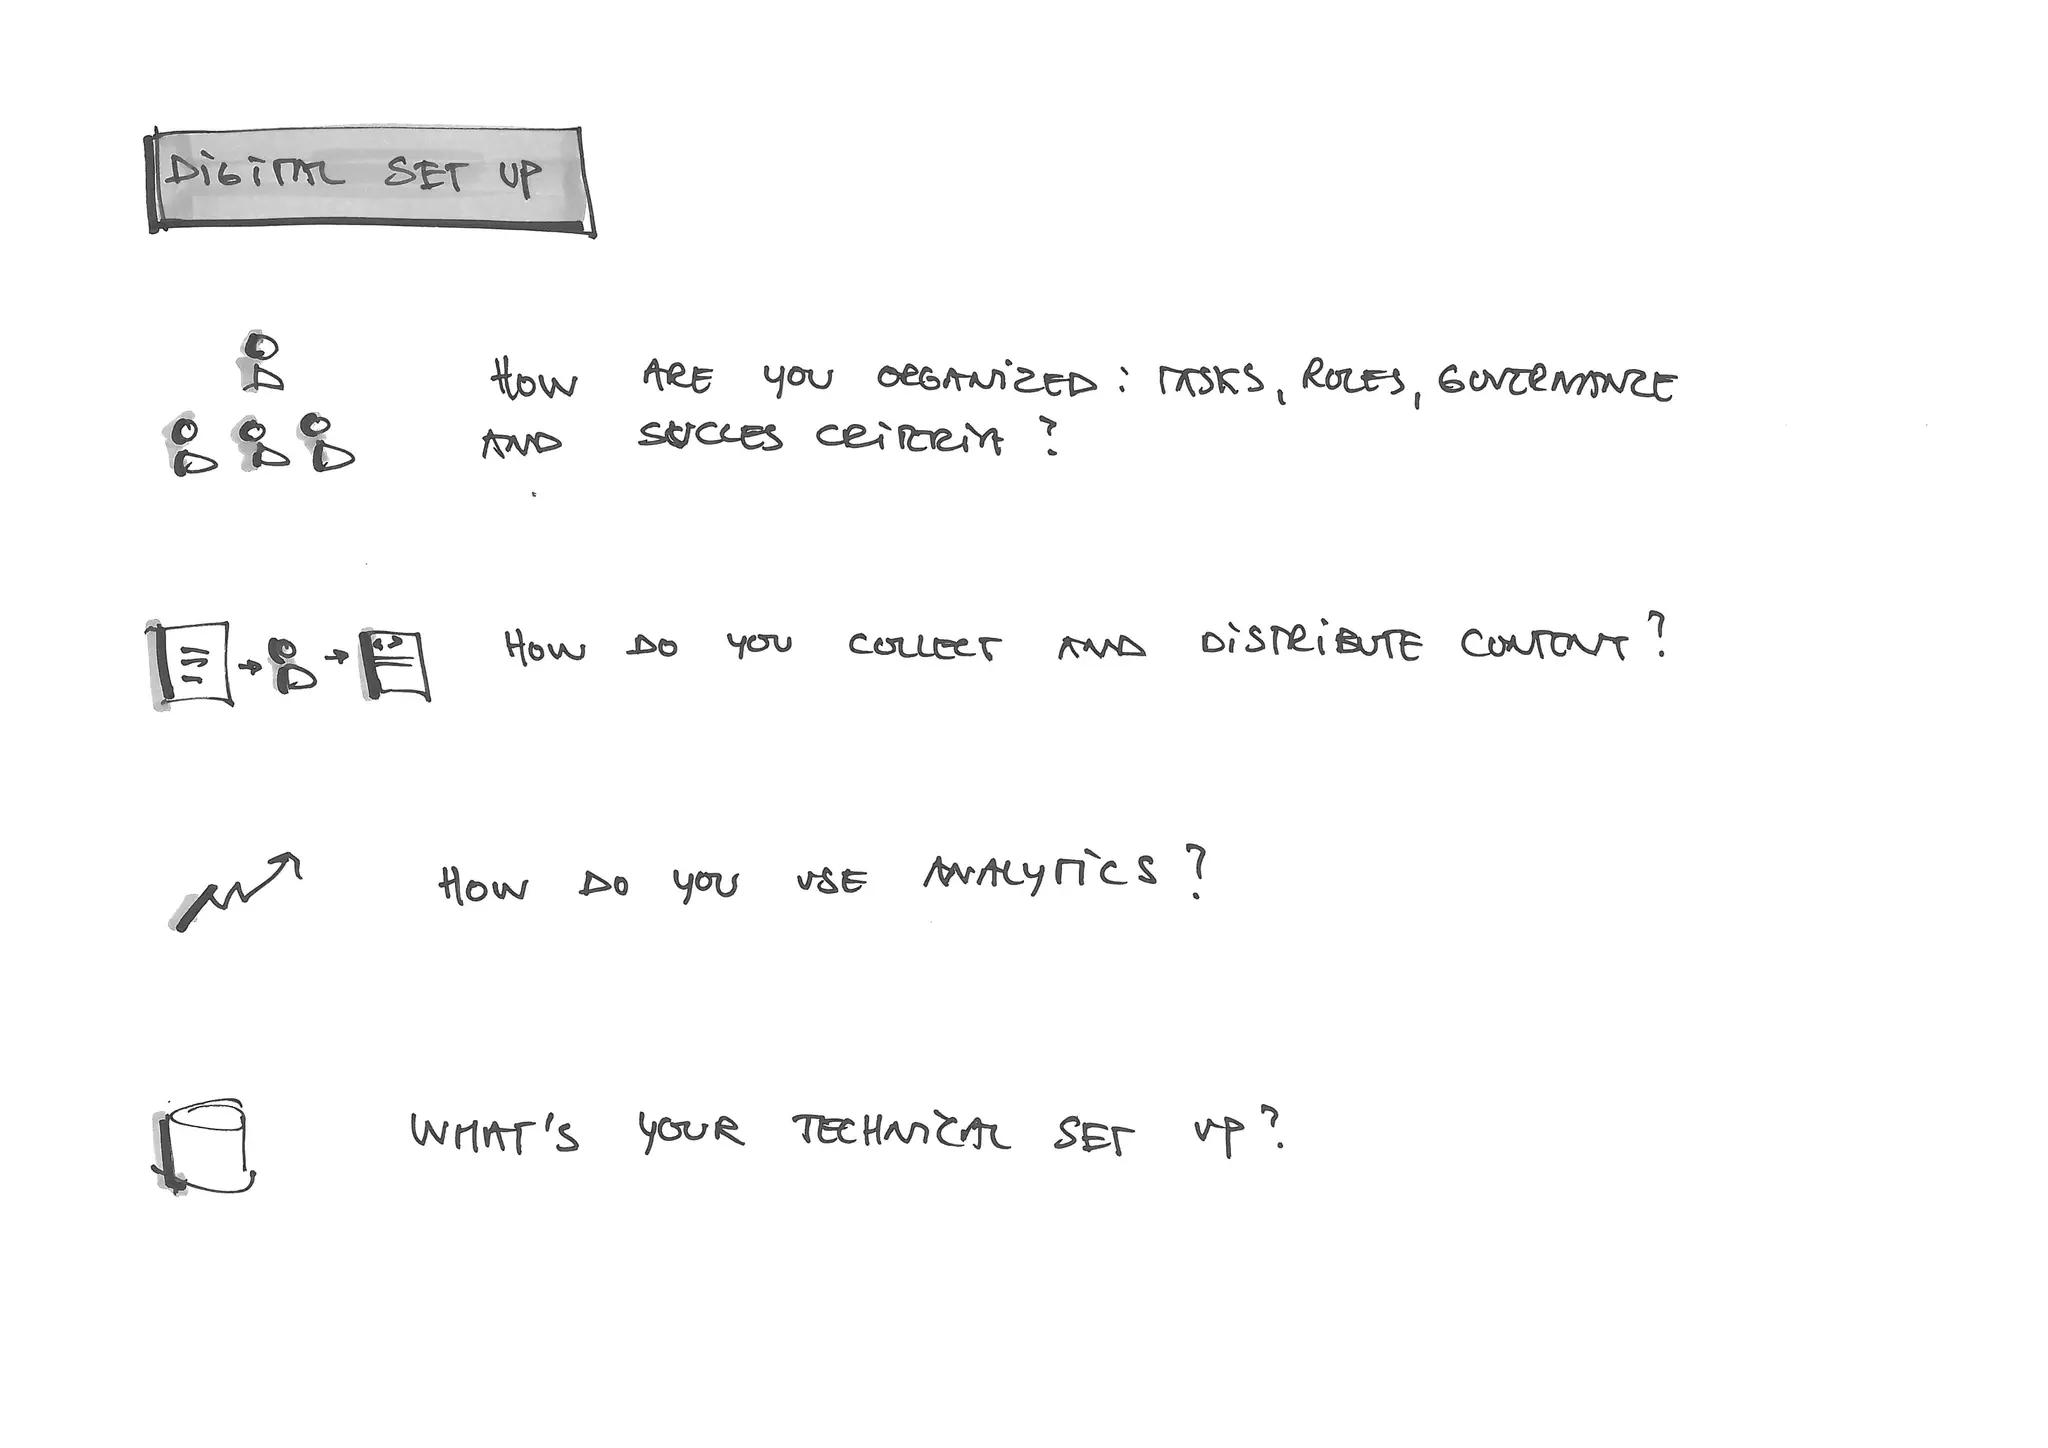 DiGiTAL SET UP
HOW ARE YOU ORGANiZED: TASKS, ROLES, GOVERNANCE
AND SUCCES CRiTERiA?
HOW DO YOU COLLECT AND DiSTRiBUTE CONTENT?
HOW DO YOU USE ANALYTiCS?
WHAT'S YOUR TECHNiCAL SET UP?